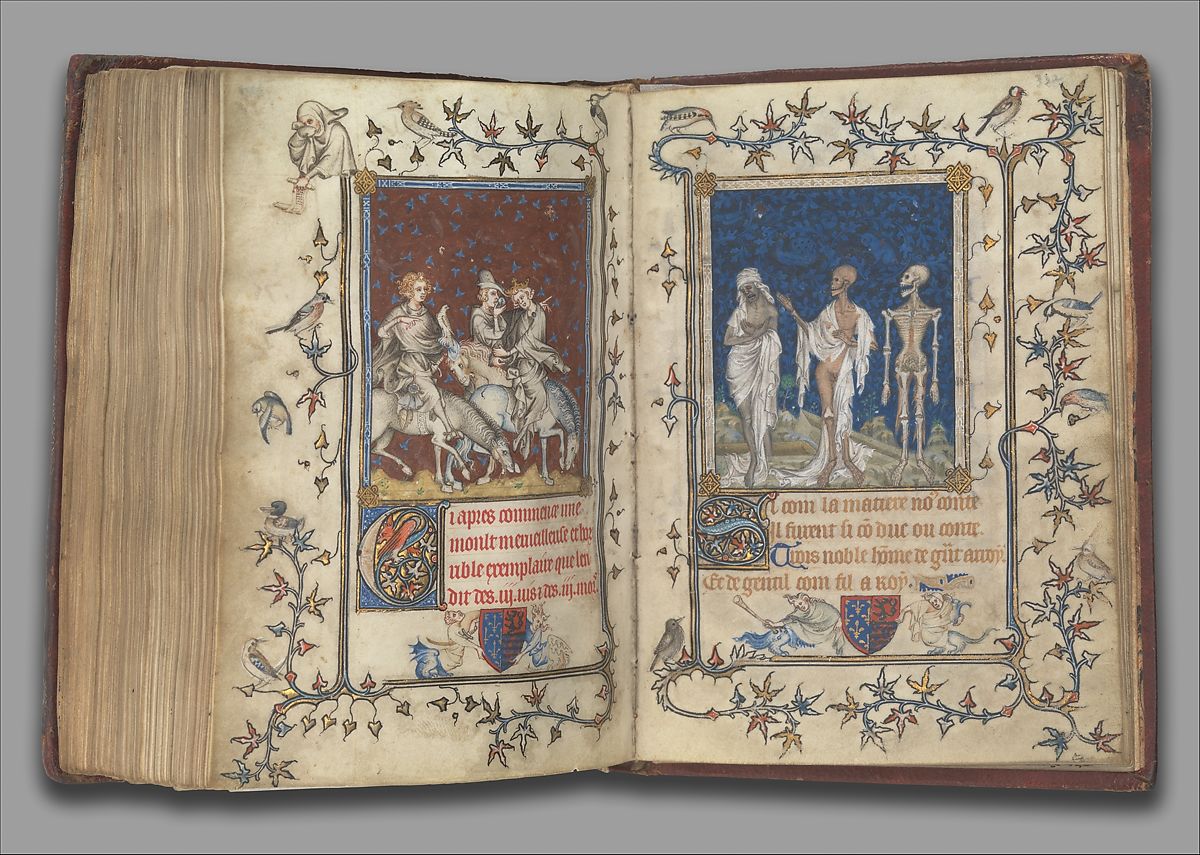 Ci apres commence une
moult merveilleuse et hor
rible exemplaire que len
dit des .iij. uis z des .iij. mors
Si com la matiere no' conte
Il furent si cō duc ou conte
Trois noble hōme de grāt arroy.
Et de gentil com fil a roy.